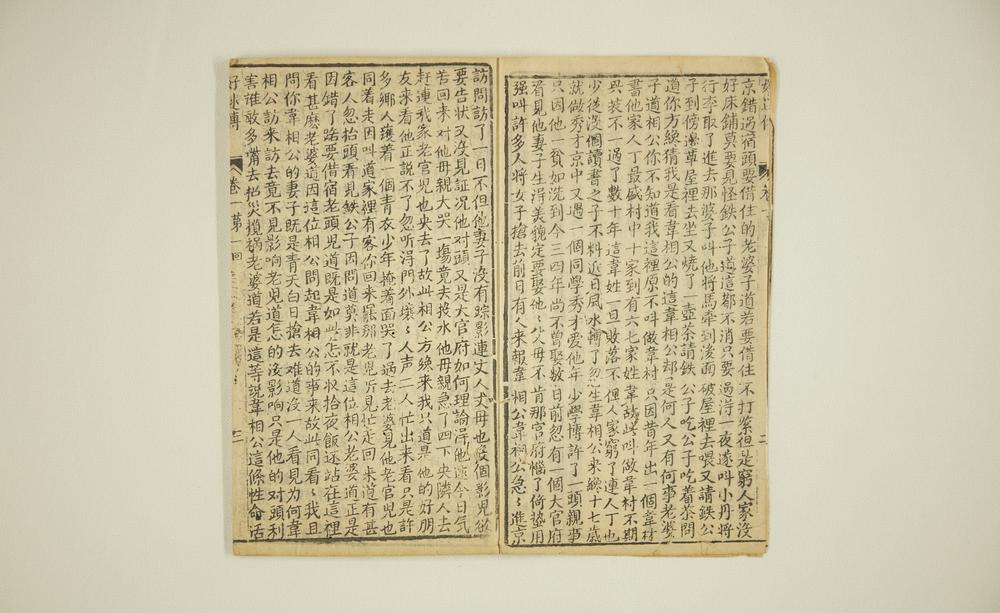 京錯過宿頭要借住的老婆子道若要借住不打緊但是窮人家沒
好床鋪莫要見怪鉄公子道這都不消只要過得一夜遂叫小丹將
行李取了進去那婆子叫他將馬牽到後面破屋裡去喂又請鉄公
子到傍邊草屋裡去坐又燒了一壺茶請鉄公子吃公子吃着茶問
道你方纔猜我是看韋相公的這韋相公却是何人又有何事老婆
子道相公你不知道我這裡原不叫做韋村只因昔年出一個韋
書他家人丁最盛村中十家到有六七家姓韋故此叫做韋村不期
興裝不一過了數十年這韋姓一旦敗落不但人家窮了連人丁也
少後沒個讀書之子不料近日風水轉了忽生韋相公來纔十七歲
就做秀才京中又遇一個同學秀才愛他年少學博許了一頭親事
只因他一貧如洗到今三四年尚不曾娶数日前忽有一個大官府
看見他妻子生得美貌定要娶他〻父母不肯那官府惱了倚勢用
强叫許多人將女子搶去前日有人來報韋相公韋相公急〻進京
訪問訪了一日不但他妻子沒有踪影連丈人丈母也沒個影兒欲
要告状又沒見証况他对頭又是大官府如何理論得他連今日氣
苦回来对他母親大哭一塲竟去投水他母親急了四下央隣人去
赶連我家老官兒也央去了故此相公方纔来我只道是他的好朋
友来看他正說不了忽听得門外嚷〻人声二人忙出来看只是許
多鄉人擭着一個青衣少年掩着面哭了過去老婆見他老官兒也
同着走因叫道家裡有客你回来罷那老兒听見忙走回来道有甚
客人忽抬頭看見鉄公子因問道莫非就是這位相公老婆道正是
因錯了路要借宿老頭兒道既是如此怎不收拾夜飯還站在這裡
看甚麽老婆道因這位相公問起韋相公的事来故此同看〻我且
問你韋相公的妻子既是青天白日搶去难道沒一人看見为何韋
相公訪来訪去竟不見影响老兒道怎的沒影响只是他的对頭利
害誰敢多嘴去惹災攬禍老婆道若是這等說韋相公這條性命活
好逑傳 卷一 第一回